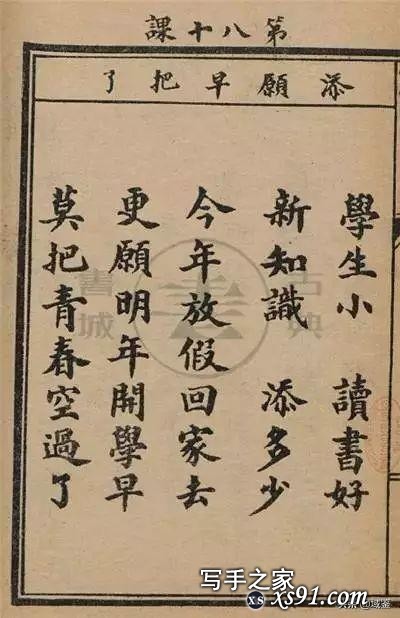 第八十課
添願早把了
學生小 讀書好
新知識 添多少
今年放假回家去
更願明年開學早
莫把青春空過了
古典
書城
写手之家
xs xs91.com
头条@域鉴